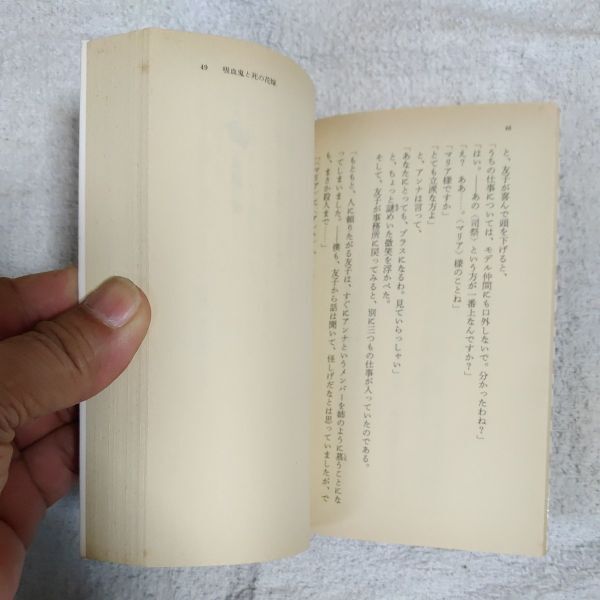 48
と、友子が喜んで頭を下げると、
「うちの仕事については、モデル仲間にも口外しないで。分かったわね？」
「はい。――あの〈司祭〉という方が一番上なんですか？」
「え？　ああ――。〈マリア〉様のことね」
「マリア様ですか」
「とても立派な方よ」
と、アンナは言って、
「あなたにとっても、プラスになるわ。見ていらっしゃい」
と、ちょっと謎めいた微笑を浮かべた。
そして、友子が事務所に戻ってみると、別に三つもの仕事が入っていたのである。
「もともと、人に頼りたがる友子は、すぐにアンナというメンバーを姉のように慕うことにな
ってしまいました。――僕も、友子から話は聞いて、怪しげだなとは思っていましたが、で
も、まさか殺人まで――」
49　吸血鬼と死の花嫁